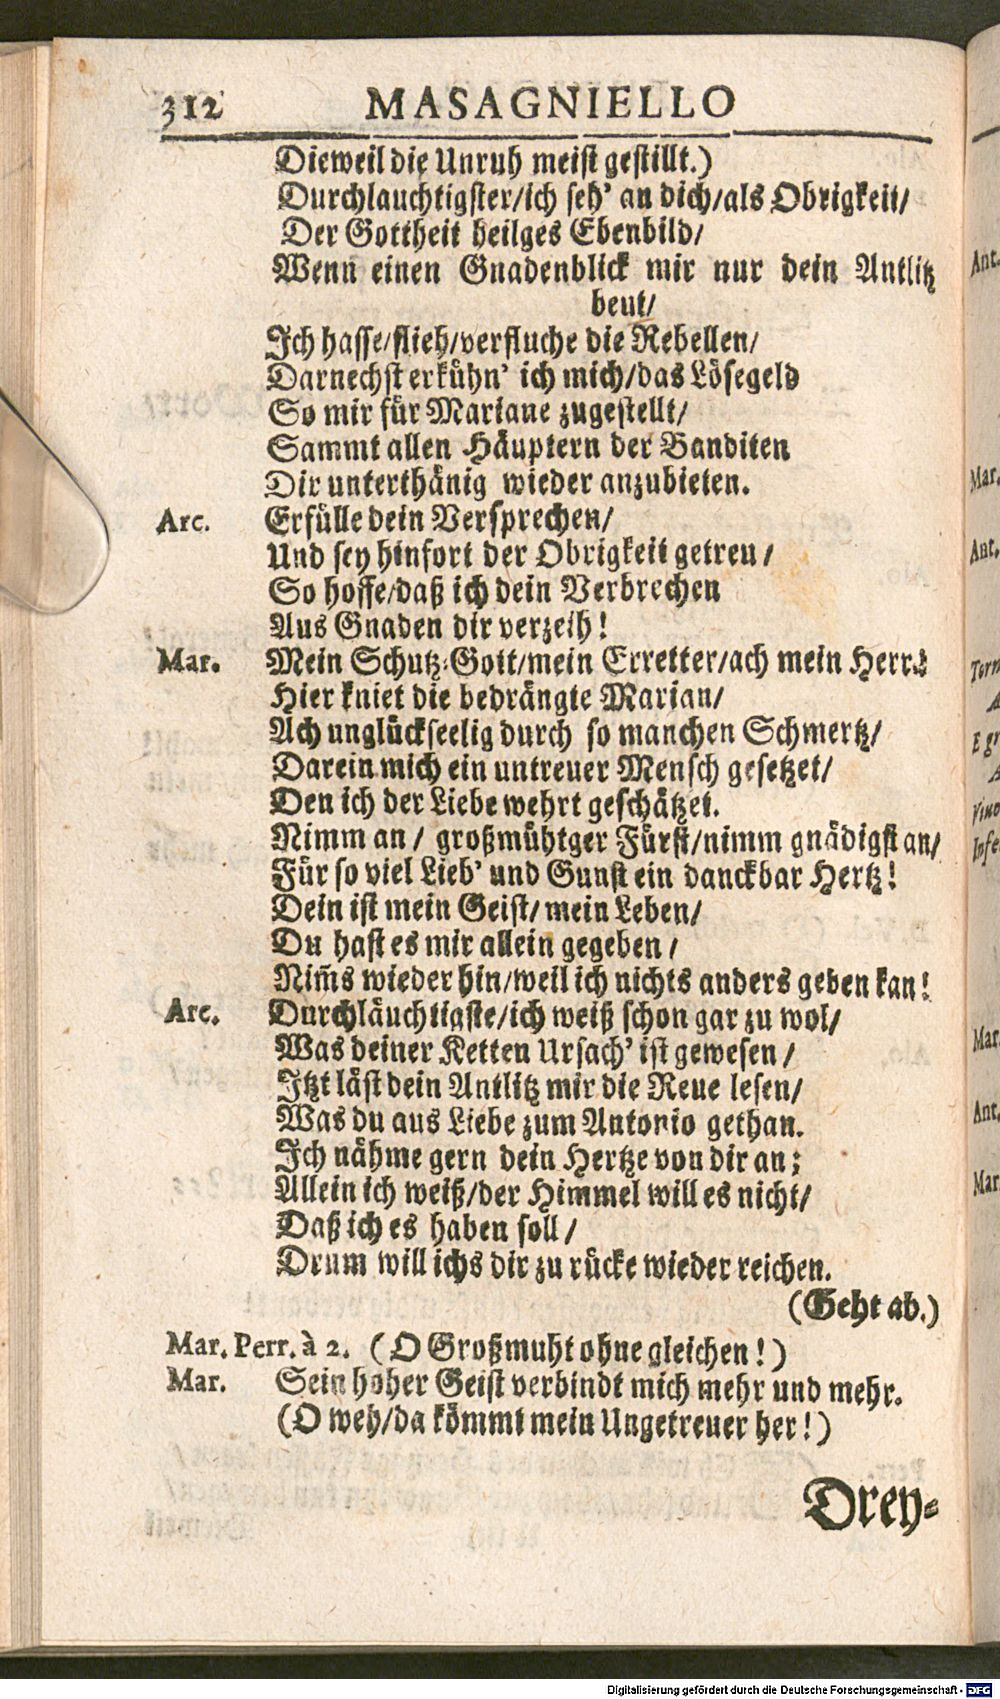 312 MASAGNIELLO
Dieweil die Unruh meist gestillt.)
Durchlauchtigster/ich seh' an dich/als Obrigkeit/
Der Gottheit heilges Ebenbild/
Wenn einen Gnadenblick mir nur dein Antlitz
beut/
Ich hasse/flieh/verfluche die Rebellen/
Darnechst erkühn' ich mich/das Lösegeld
So mir für Mariane zugestellt/
Sammt allen Häuptern der Banditen
Dir unterthänig wieder anzubieten.
Arc. Erfülle dein Versprechen/
Und sey hinfort der Obrigkeit getreu/
So hoffe/daß ich dein Verbrechen
Aus Gnaden dir verzeih!
Mar. Mein Schutz-Gott/mein Erretter/ach mein Herr!
Hier kniet die bedrängte Marian/
Ach unglückseelig durch so manchen Schmertz/
Darein mich ein untreuer Mensch gesetzet/
Den ich der Liebe wehrt geschätzet.
Nimm an/ großmühtger Fürst/nimm gnädigst an/
Für so viel Lieb' und Gunst ein danckbar Hertz!
Dein ist mein Geist/mein Leben/
Du hast es mir allein gegeben/
Nim̃s wieder hin/weil ich nichts anders geben kan!
Arc. Durchläuchtigste/ich weiß schon gar zu wol/
Was deiner Ketten Ursach' ist gewesen/
Itzt läst dein Antlitz mir die Reue lesen/
Was du aus Liebe zum Antonio gethan.
Ich nähme gern dein Hertze von dir an;
Allein ich weiß/der Himmel will es nicht/
Daß ich es haben soll/
Drum will ichs dir zu rücke wieder reichen.
(Geht ab.)
Mar. Perr. à 2. (O Großmuht ohne gleichen!)
Mar. Sein hoher Geist verbindt mich mehr und mehr.
(O weh/da kömmt mein Ungetreuer her!)
Drey-
Ant.
Mar.
Ant.
Mar.
Ant.
Mar.
Digitalisierung gefördert durch die Deutsche Forschungsgemeinschaft - DFG